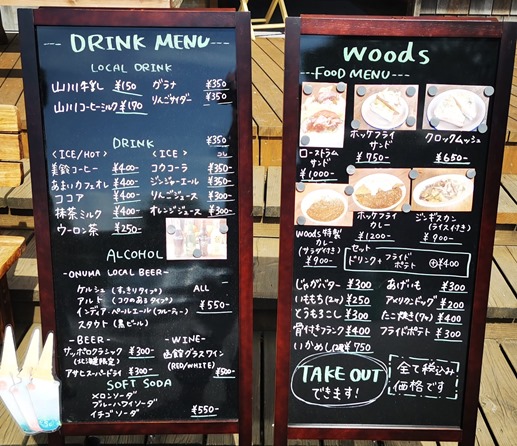 DRINK MENU
LOCAL DRINK
山川牛乳 ¥150
ガラナ ¥350
山川コーヒーミルク ¥170
りんごサイダー ¥350
DRINK
<ICE/HOT>
美鈴コーヒー ¥400-
あまいカフェオレ ¥400-
ココア ¥400-
抹茶ミルク ¥400-
ウーロン茶 ¥250-
<ICE>
コカコーラ ¥350-
ジンジャーエール ¥350-
りんごジュース ¥300-
オレンジジュース ¥300-
ALCOHOL
-ONUMA LOCAL BEER-
ケルシュ(すっきりタイプ)
アルト(コクのあるタイプ)
インディア・ペールエール(フルーティー)
スタウト(黒ビール)
ALL
¥550-
-BEER-
サッポロクラシック
(北海道限定)
¥300-
アサヒスーパードライ ¥300-
-WINE-
函館グラスワイン
(RED/WHITE) ¥500-
SOFT SODA
メロンソーダ
ブルーハワイソーダ
イチゴソーダ
¥550-
Woods
---FOOD MENU---
ローストラム
サンド
¥1000-
ホッケフライ
サンド
¥750-
クロックムッシュ
¥650-
Woods特製
カレー
(サラダ付き)
¥900-
ホッケフライ
カレー
¥1200-
ジンギスカン
(ライス付き)
¥900-
セット
ドリンク+フライドポテト ⊕¥400
じゃがバター ¥300
いももち(2ヶ) ¥250
とうもろこし ¥300
骨付きフランク ¥400
いかめし(2尾) ¥750
あげいも ¥300
アメリカンドッグ ¥200
たこ焼き(7ヶ) ¥400
フライドポテト ¥300
TAKE OUT
できます!
全て税込み
価格です